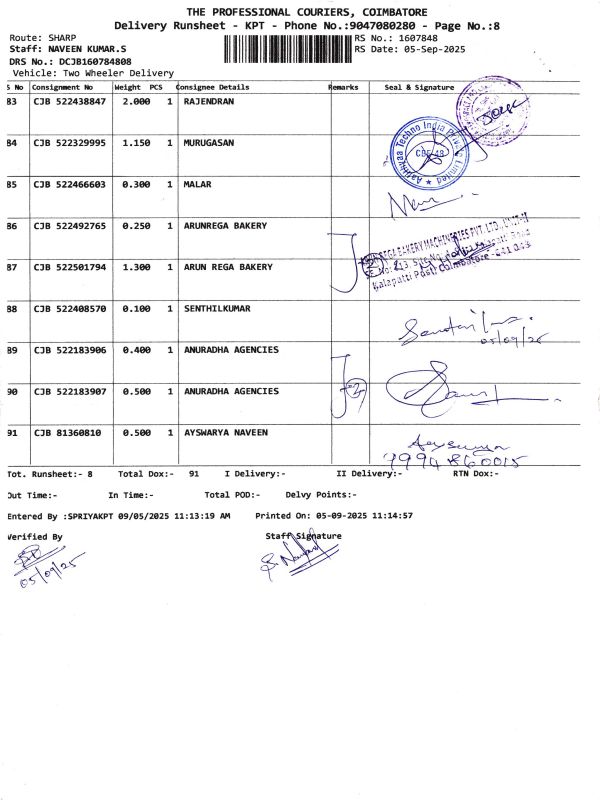 THE PROFESSIONAL COURIERS, COIMBATORE
Delivery Runsheet - KPT - Phone No.:9047080280 - Page No.:8
Route: SHARP
RS No.: 1607848
Staff: NAVEEN KUMAR.S
RS Date: 05-Sep-2025
DRS No.: DCJB160784808
Vehicle: Two Wheeler Delivery
S No Consignment No Weight PCS Consignee Details Remarks Seal & Signature
83 CJB 522438847 2.000 1 RAJENDRAN
84 CJB 522329995 1.150 1 MURUGASAN
Techno India Private Limited
CBE-48
85 CJB 522466603 0.300 1 MALAR
86 CJB 522492765 0.250 1 ARUNREGA BAKERY
REGA BAKERY MACHINERIES PVT. LTD.
87 CJB 501794 1.300 1 ARUN REGA BAKERY
Kalapatti Post Coimbatore
88 CJB 522408570 0.100 1 SENTHILKUMAR
05/09/25
89 CJB 522183906 0.400 1 ANURADHA AGENCIES
90 CJB 522183907 0.500 1 ANURADHA AGENCIES
91 CJB 81360810 0.500 1 AYSWARYA NAVEEN
7994860015
Tot. Runsheet:- 8 Total Dox:- 91 I Delivery:- II Delivery:- RTN Dox:-
Out Time:- In Time:- Total POD:- Delvy Points:-
Entered By :SPRIYAKPT 09/05/2025 11:13:19 AM Printed On: 05-09-2025 11:14:57
Verified By Staff Signature
05/09/25